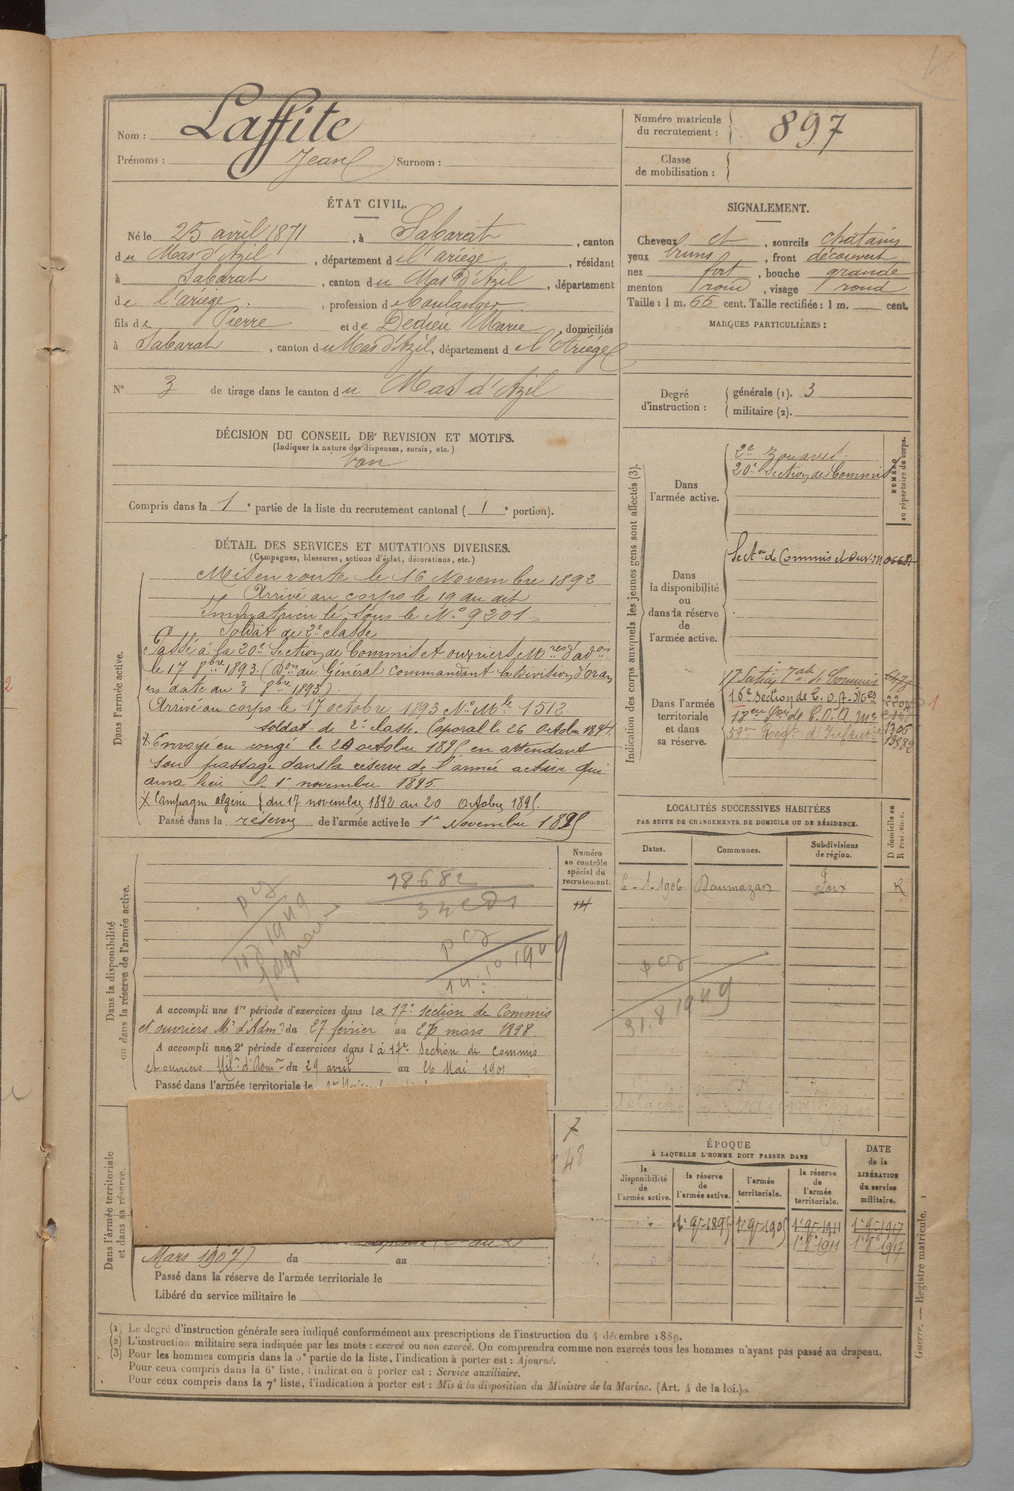 Nom : Laffite
Prénoms : Jean Surnom :
Numéro matricule du recrutement : 897
Classe de mobilisation :
ÉTAT CIVIL.
Né le 25 avril 1871, à Sabarat, canton
du Mas d'Azil, département de l'ariège, résidant
à Sabarat, canton du Mas d'Azil, département
de l'ariège, profession de Boulanger
fils de Pierre et de Dedieu Marie, domiciliés
à Sabarat, canton du Mas d'Azil, département de l'Ariège
N° 3 de tirage dans le canton du Mas d'Azil
SIGNALEMENT.
Cheveux et, sourcils chatains
yeux bruns, front découvert
nez fort, bouche grande
menton rond, visage rond
Taille : 1 m. 66 cent. Taille rectifiée : 1 m. cent.
MARQUES PARTICULIÈRES :
Degré d'instruction : générale (1). 3
militaire (2).
DÉCISION DU CONSEIL DE REVISION ET MOTIFS.
(Indiquer la nature des dispenses, sursis, etc.)
bon
Compris dans la 1e partie de la liste du recrutement cantonal (1e portion).
DÉTAIL DES SERVICES ET MUTATIONS DIVERSES.
(Campagnes, blessures, actions d'éclat, décorations, etc.)
Dans l'armée active.
Mis en route le 16 Novembre 1892
Arrivé au corps le 19 du dit
Immatriculé sous le N° 9201
Soldat de 2e classe
Passé à la 20e Section de Commis et ouvriers Mres d'adon
le 17 8bre 1893 (Don du Général Commandant la Division d'Oran
en date du 3 8bre 1893)
Arrivé au corps le 17 octobre 1893 N° Mle 1512
soldat de 2e classe. Caporal le 26 Octobre 1894.
Envoyé en congé le 20 octobre 1895 en attendant
son passage dans la réserve de l'armée active qui
aura lieu le 1er novembre 1895.
Campagne algérie du 17 novembre 1892 au 20 Octobre 1895
Passé dans la réserve de l'armée active le 1er Novembre 1895
Indication des corps auxquels les jeunes gens sont affectés (3).
NUMÉRO au répertoire du corps.
Dans l'armée active.
2e Zouaves
20e Section de Commis
Dans la disponibilité ou dans la réserve de l'armée active.
Secton de Commis et Ouv.
Dans l'armée territoriale et dans sa réserve.
16e Section de C.O.A.
2204
1306
LOCALITÉS SUCCESSIVES HABITÉES
PAR SUITE DE CHANGEMENTS DE DOMICILE OU DE RÉSIDENCE.
Dates. Communes. Subdivisions de région. D domicile ou R résidence.
6-1-1906 Daumazan Foix R
Dans la disponibilité ou dans la réserve de l'armée active.
Numéro au contrôle spécial du recrutement.
18682
14-10 1909
31.8 1909
A accompli une 1re période d'exercices dans la 17e section de Commis
et ouvriers Mre d'Admon du 27 février au 26 mars 1898
A accompli une 2e période d'exercices dans la 17e Section de Commis
et ouvriers Milre d'Admon du 29 avril au 26 Mai 1901
Passé dans l'armée territoriale le
Dans l'armée territoriale et dans sa réserve.
7
48
Mars 1907) du au
Passé dans la réserve de l'armée territoriale le
Libéré du service militaire le
ÉPOQUE
À LAQUELLE L'HOMME DOIT PASSER DANS
la disponibilité de l'armée active. la réserve de l'armée active. l'armée territoriale. la réserve de l'armée territoriale.
DATE de la LIBÉRATION du service militaire.
1er 9bre 1895 1er 9bre 1905 1er 9bre 1911 1er 9bre 1917
1er 8bre 1911 1er 8bre 1917
(1) Le degré d'instruction générale sera indiqué conformément aux prescriptions de l'instruction du 4 décembre 1889.
(2) L'instruction militaire sera indiquée par les mots : exercé ou non exercé. On comprendra comme non exercés tous les hommes n'ayant pas passé au drapeau.
(3) Pour les hommes compris dans la 5e partie de la liste, l'indication à porter est : Ajourné.
Pour ceux compris dans la 6e liste, l'indication à porter est : Service auxiliaire.
Pour ceux compris dans la 7e liste, l'indication à porter est : Mis à la disposition du Ministre de la Marine. (Art. 4 de la loi.)
Guerre. — Registre matricule. 1